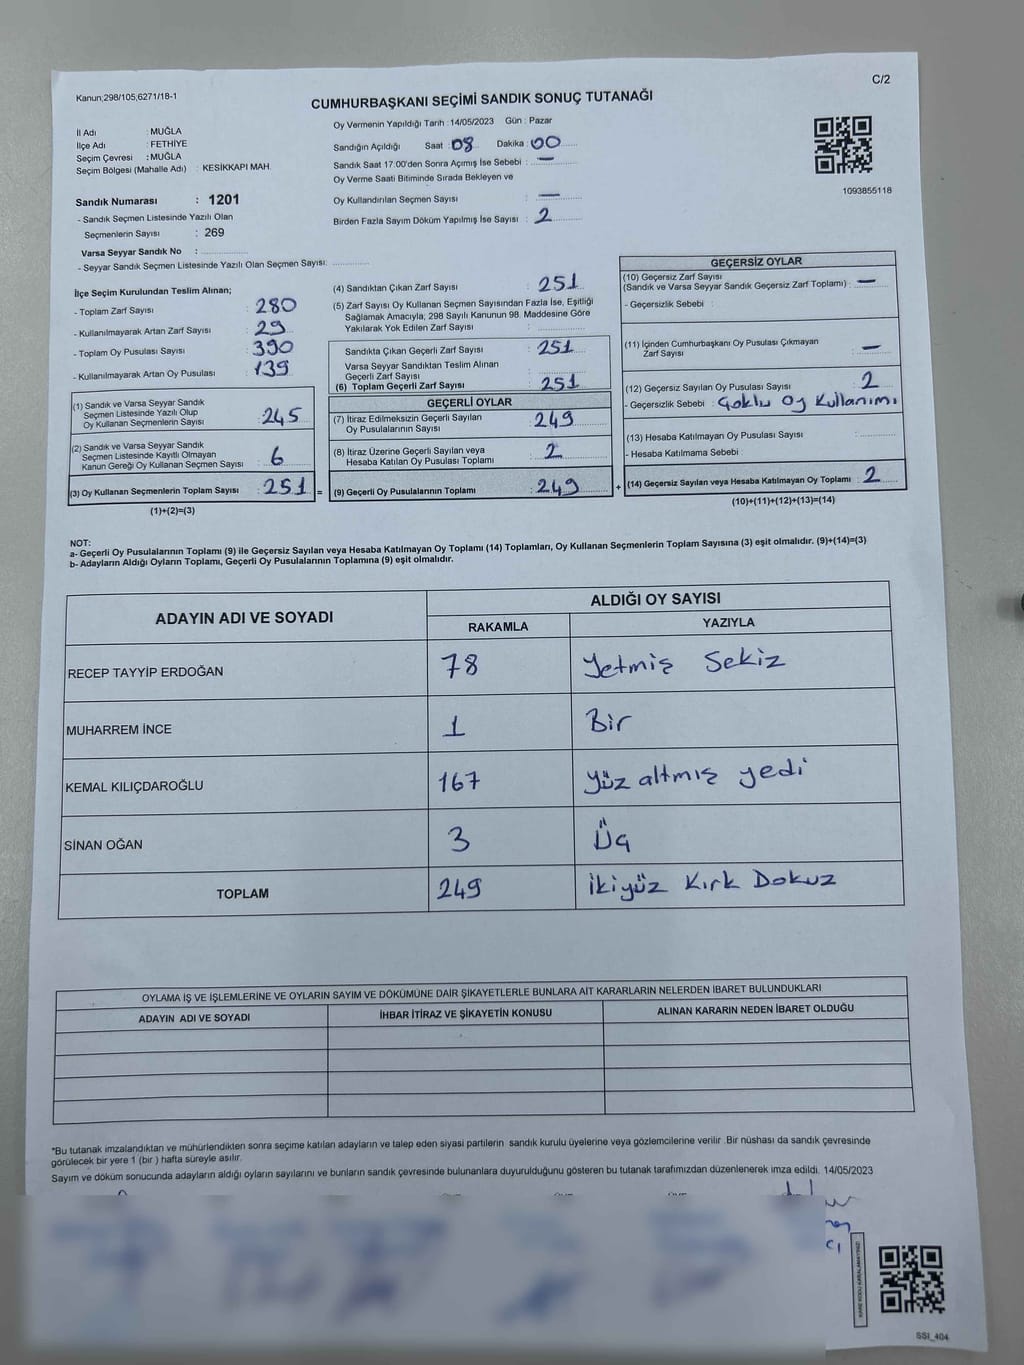 Kanun;298/105,6271/18-1
C/2
CUMHURBAŞKANI SEÇİMİ SANDIK SONUÇ TUTANAĞI
İl Adı : MUĞLA
İlçe Adı : FETHİYE
Seçim Çevresi : MUĞLA
Seçim Bölgesi (Mahalle Adı) : KESİKKAPI MAH.
Sandık Numarası : 1201
- Sandık Seçmen Listesinde Yazılı Olan
Seçmenlerin Sayısı : 269
Varsa Seyyar Sandık No :
- Seyyar Sandık Seçmen Listesinde Yazılı Olan Seçmen Sayısı:
Oy Vermenin Yapıldığı Tarih : 14/05/2023 Gün : Pazar
Sandığın Açıldığı Saat : 08 Dakika : 00
Sandık Saat 17:00'den Sonra Açımış İse Sebebi : —
Oy Verme Saati Bitiminde Sırada Bekleyen ve
Oy Kullandırılan Seçmen Sayısı : —
Birden Fazla Sayım Döküm Yapılmış İse Sayısı : 2
1093855118
İlçe Seçim Kurulundan Teslim Alınan;
- Toplam Zarf Sayısı : 280
- Kullanılmayarak Artan Zarf Sayısı : 29
- Toplam Oy Pusulası Sayısı : 390
- Kullanılmayarak Artan Oy Pusulası : 139
(1) Sandık ve Varsa Seyyar Sandık
Seçmen Listesinde Yazılı Olup
Oy Kullanan Seçmenlerin Sayısı : 245
(2) Sandık ve Varsa Seyyar Sandık
Seçmen Listesinde Kayıtlı Olmayan
Kanun Gereği Oy Kullanan Seçmen Sayısı : 6
(3) Oy Kullanan Seçmenlerin Toplam Sayısı : 251 =
(1)+(2)=(3)
(4) Sandıktan Çıkan Zarf Sayısı : 251
(5) Zarf Sayısı Oy Kullanan Seçmen Sayısından Fazla İse, Eşitliği
Sağlamak Amacıyla; 298 Sayılı Kanunun 98. Maddesine Göre
Yakılarak Yok Edilen Zarf Sayısı :
Sandıkta Çıkan Geçerli Zarf Sayısı : 251
Varsa Seyyar Sandıktan Teslim Alınan
Geçerli Zarf Sayısı :
(6) Toplam Geçerli Zarf Sayısı : 251
GEÇERLİ OYLAR
(7) İtiraz Edilmeksizin Geçerli Sayılan
Oy Pusulalarının Sayısı : 249
(8) İtiraz Üzerine Geçerli Sayılan veya
Hesaba Katılan Oy Pusulası Toplamı : 2
(9) Geçerli Oy Pusulalarının Toplamı : 249 +
GEÇERSİZ OYLAR
(10) Geçersiz Zarf Sayısı
(Sandık ve Varsa Seyyar Sandık Geçersiz Zarf Toplamı) : —
- Geçersizlik Sebebi :
(11) İçinden Cumhurbaşkanı Oy Pusulası Çıkmayan
Zarf Sayısı : —
(12) Geçersiz Sayılan Oy Pusulası Sayısı : 2
- Geçersizlik Sebebi : Çoklu Oy Kullanımı
(13) Hesaba Katılmayan Oy Pusulası Sayısı :
- Hesaba Katılmama Sebebi :
(14) Geçersiz Sayılan veya Hesaba Katılmayan Oy Toplamı : 2
(10)+(11)+(12)+(13)=(14)
NOT:
a- Geçerli Oy Pusulalarının Toplamı (9) ile Geçersiz Sayılan veya Hesaba Katılmayan Oy Toplamı (14) Toplamları, Oy Kullanan Seçmenlerin Toplam Sayısına (3) eşit olmalıdır. (9)+(14)=(3)
b- Adayların Aldığı Oyların Toplamı, Geçerli Oy Pusulalarının Toplamına (9) eşit olmalıdır.
ADAYIN ADI VE SOYADI ALDIĞI OY SAYISI
RAKAMLA YAZIYLA
RECEP TAYYİP ERDOĞAN 78 Yetmiş Sekiz
MUHARREM İNCE 1 Bir
KEMAL KILIÇDAROĞLU 167 Yüz altmış yedi
SİNAN OĞAN 3 Üç
TOPLAM 249 İkiyüz Kırk Dokuz
OYLAMA İŞ VE İŞLEMLERİNE VE OYLARIN SAYIM VE DÖKÜMÜNE DAİR ŞİKAYETLERLE BUNLARA AİT KARARLARIN NELERDEN İBARET BULUNDUKLARI
ADAYIN ADI VE SOYADI İHBAR İTİRAZ VE ŞİKAYETİN KONUSU ALINAN KARARIN NEDEN İBARET OLDUĞU
*Bu tutanak imzalandıktan ve mühürlendikten sonra seçime katılan adayların ve talep eden siyasi partilerin sandık kurulu üyelerine veya gözlemcilerine verilir .Bir nüshası da sandık çevresinde
görülecek bir yere 1 (bir ) hafta süreyle asılır.
Sayım ve döküm sonucunda adayların aldığı oyların sayılarını ve bunların sandık çevresinde bulunanlara duyurulduğunu gösteren bu tutanak tarafımızdan düzenlenerek imza edildi. 14/05/2023
KARE KODU KARALAMAYINIZ!
SSI_404